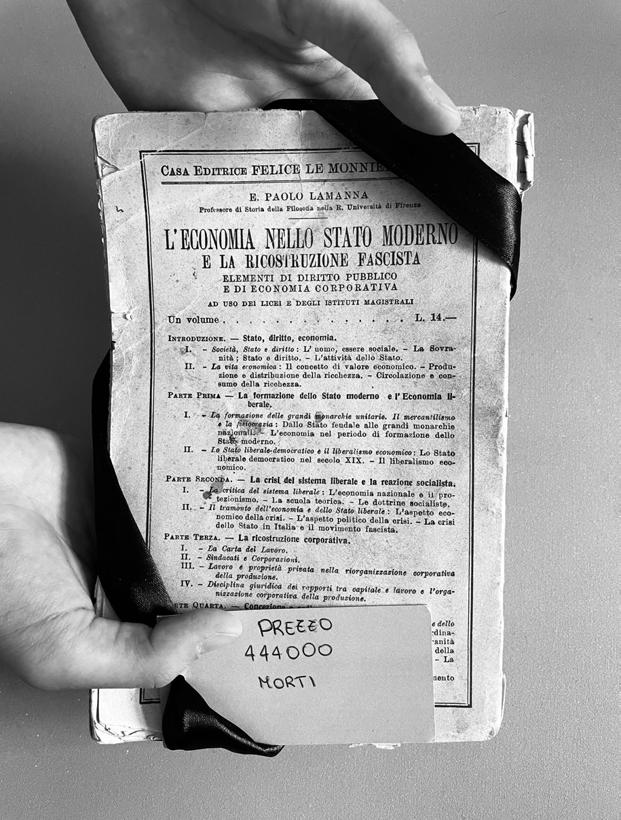 CASA EDITRICE FELICE LE MONNIE
E. PAOLO LAMANNA
Professore di Storia della Filosofia nella R. Università di Firenze
L'ECONOMIA NELLO STATO MODERNO
E LA RICOSTRUZIONE FASCISTA
ELEMENTI DI DIRITTO PUBBLICO
E DI ECONOMIA CORPORATIVA
AD USO DEI LICEI E DEGLI ISTITUTI MAGISTRALI
Un volume . . . . . . . . . . . . . L. 14.—
INTRODUZIONE. — Stato, diritto, economia.
I. – Società, Stato e diritto: L'uomo, essere sociale. – La Sovra-
nità: Stato e diritto. – L'attività dello Stato.
II. – La vita economica: Il concetto di valore economico. – Produ-
zione e distribuzione della ricchezza. – Circolazione e con-
sumo della ricchezza.
PARTE PRIMA — La formazione dello Stato moderno e l'Economia li-
berale.
I. – La formazione delle grandi monarchie unitarie. Il mercantilismo
e la fisiocrazia: Dallo Stato feudale alle grandi monarchie
nazionali. – L'economia nel periodo di formazione dello
Stato moderno.
II. – Lo Stato liberale-democratico e il liberalismo economico: Lo Stato
liberale democratico nel secolo XIX. – Il liberalismo eco-
nomico.
PARTE SECONDA. — La crisi del sistema liberale e la reazione socialista.
I. – La critica del sistema liberale: L'economia nazionale e il pro-
tezionismo. – La scuola teorica. – Le dottrine socialiste.
II. – Il tramonto dell'economia e dello Stato liberale: L'aspetto eco-
nomico della crisi. – L'aspetto politico della crisi. – La crisi
dello Stato in Italia e il movimento fascista.
PARTE TERZA. — La ricostruzione corporativa.
I. – La Carta del Lavoro.
II. – Sindacati e Corporazioni.
III. – Lavoro e proprietà privata nella riorganizzazione corporativa
della produzione.
IV. – Disciplina giuridica dei rapporti tra capitale e lavoro e l'orga-
nizzazione corporativa della produzione.
QUARTA. —
e dello
rdina-
anità
della
– La
mento
PREZZO
444000
MORTI